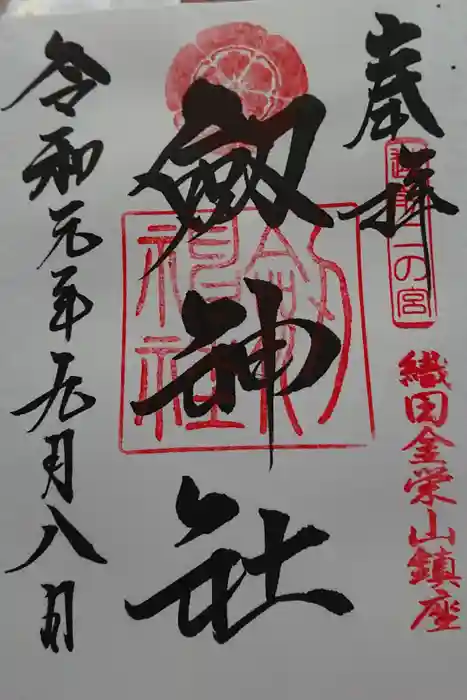 奉拝
越前二の宮
織田金栄山鎮座
劔神社
劔神社
令和元年九月八日